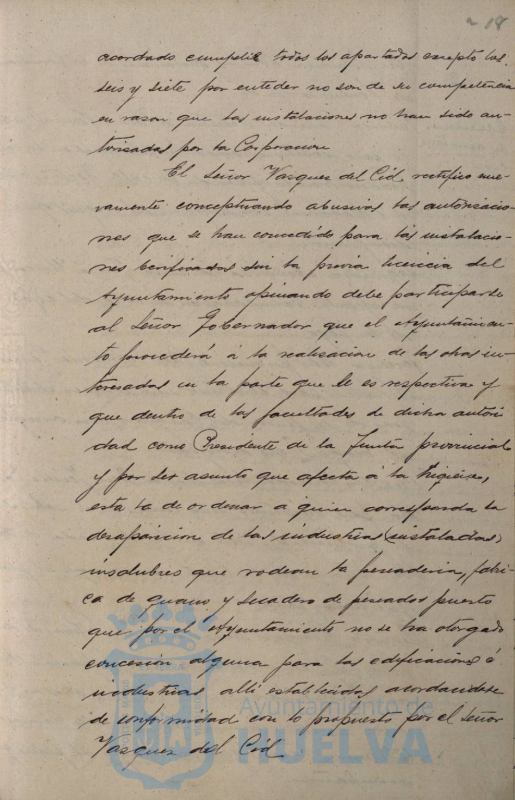 18
acordado cumplir todos los apartados excepto los
seis y siete por enteder no son de su competencia
en razon que las instalaciones no han sido au-
torizadas por la Corporacion
El Señor Vazquez del Cid, rectifico nue-
vamente conceptuando abusivas las autorizacio-
nes que se han concedido para las instalacio-
nes berificadas sin la previa licencia del
Ayuntamiento opinando debe participarse
al Señor Gobernador que el Ayuntamien-
to procederá á la realizacion de las obras in-
teresadas en la parte que le es respectiva y
que dentro de las facultades de dicha autori
dad como Presidente de la Junta provincial
y por ser asunto que afecta á la higiene,
esta la de ordenar a quien corresponda la
desaparicion de las industrias (instaladas)
insalubres que rodean la pescaderia, fabri-
ca de guano y secadero de pescados puesto
que por el Ayuntamiento no se ha otorgado
concesión alguna para las edificaciones é
industrias alli establecidas acordandose
de conformidad con lo propuesto por el Señor
Vazquez del Cid.
Ayuntamiento de
HUELVA